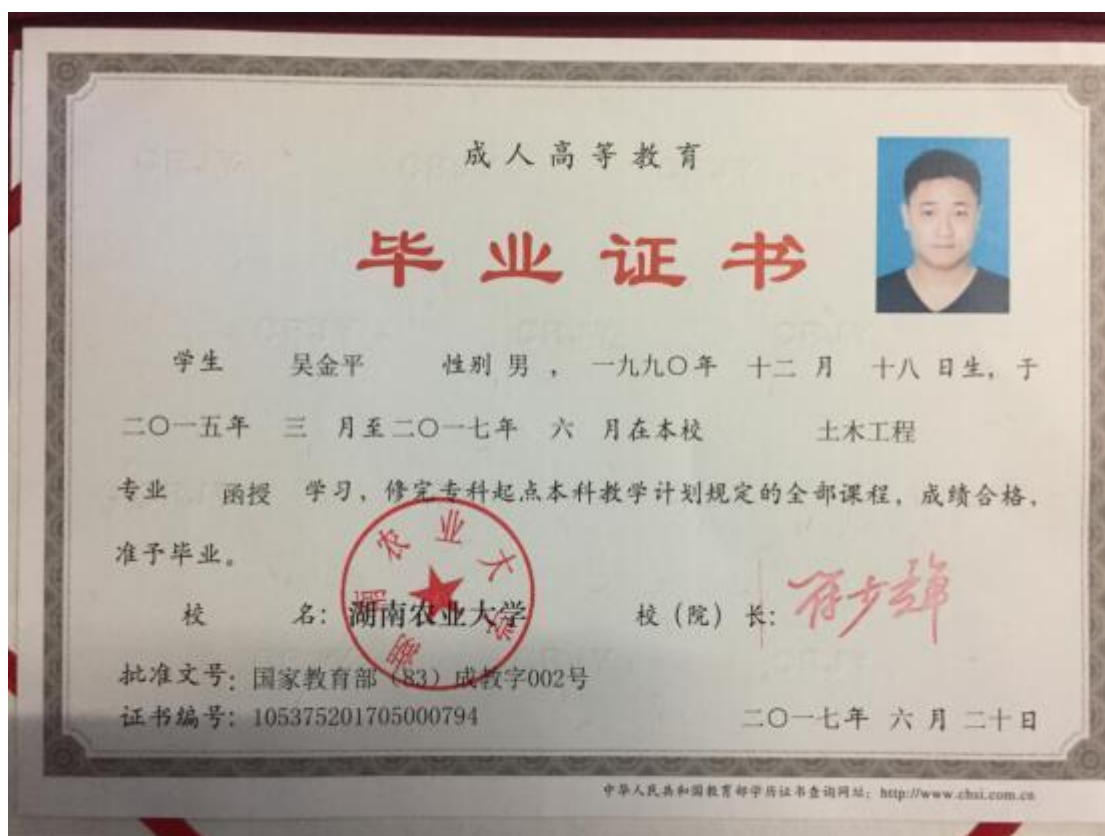 成人高等教育
毕业证书
学生 吴金平 性别 男 ， 一九九〇年 十二 月 十八 日生，于
二〇一五年 三 月至二〇一七年 六 月在本校 土木工程
专业 函授 学习、修完专科起点本科教学计划规定的全部课程，成绩合格，
准予毕业。
校 名：湖南农业大学 校（院）长：
湖南农业大学
批准文号：国家教育部（83）成教字002号
证书编号：105375201705000794
二〇一七年 六 月 二十 日
中华人民共和国教育部学历证书查询网址：http://www.chsi.com.cn